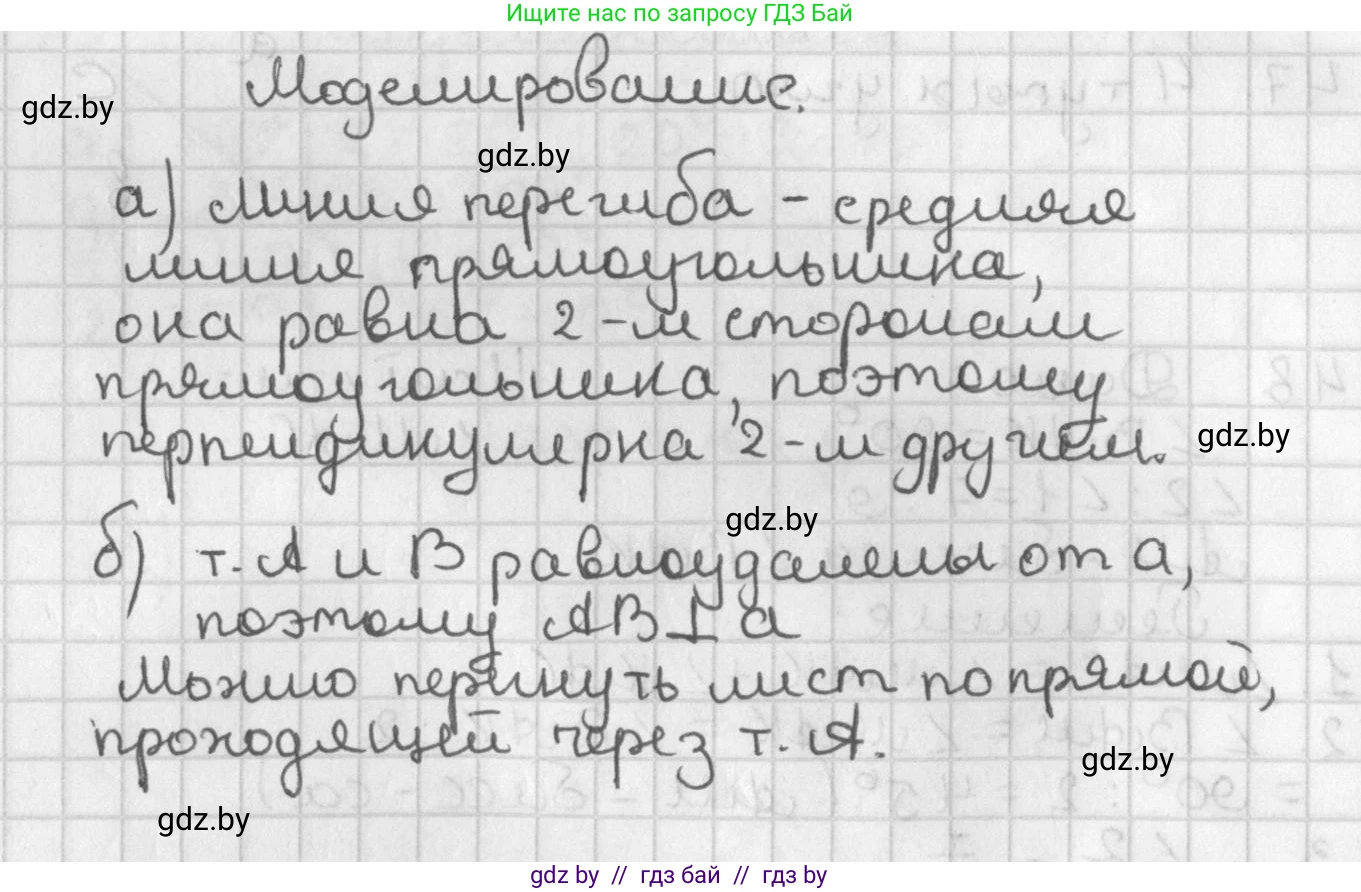 Ищите нас по запросу ГДЗ Бай
Моделирование.
gdz.by
gdz.by
а) линия перегиба - средняя
линия прямоугольника,
она равна 2-м сторонам
прямоугольника, поэтому
перпендикулярна 2-м другим.
gdz.by
gdz.by
б) т. А и В равноудалены от а,
поэтому АВ⊥а
Можно перегнуть лист по прямой,
проходящей через т. А.
gdz.by
gdz.by
gdz by // гдз бай // гдз by